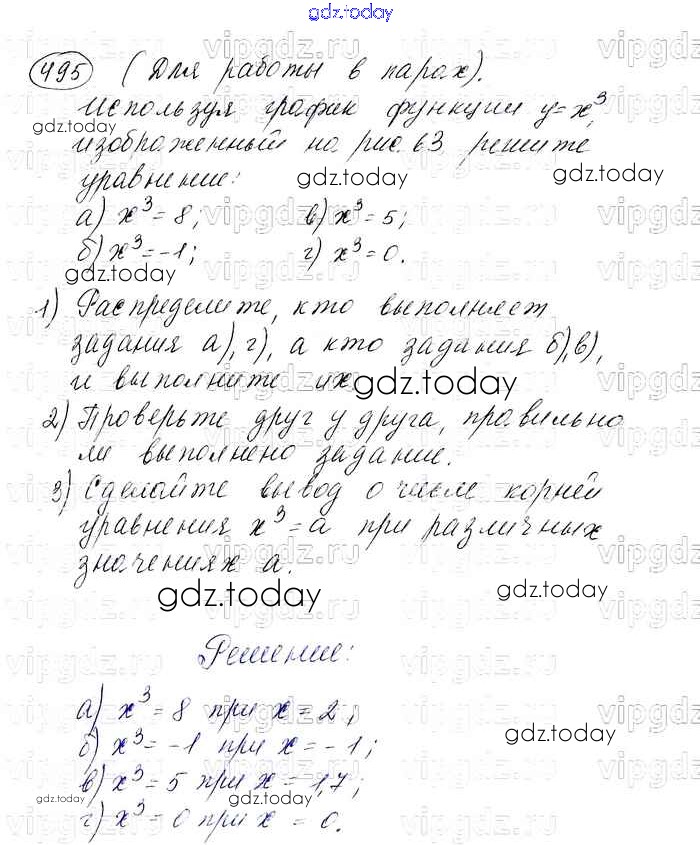 gdz.today
495 (Для работы в парах).
Используя график функции y=x³,
gdz.today
изображенный на рис. 63 решите
уравнение:
gdz.today
gdz.today
а) x³ = 8; в) x³ = 5;
б) x³ = -1; г) x³ = 0.
gdz.today
1) Распределите, кто выполняет
задания а), г), а кто задания б), в),
и выполните их
gdz.today
2) Проверьте друг у друга, правильно
ли выполнено задание.
3) Сделайте вывод о числе корней
уравнения x³ = a при различных
значениях a.
gdz.today
gdz.today
Решение:
а) x³ = 8 при x = 2;
б) x³ = -1 при x = -1;
gdz.today
в) x³ = 5 при x = 1,7;
gdz.today
gdz.today
г) x³ = 0 при x = 0.